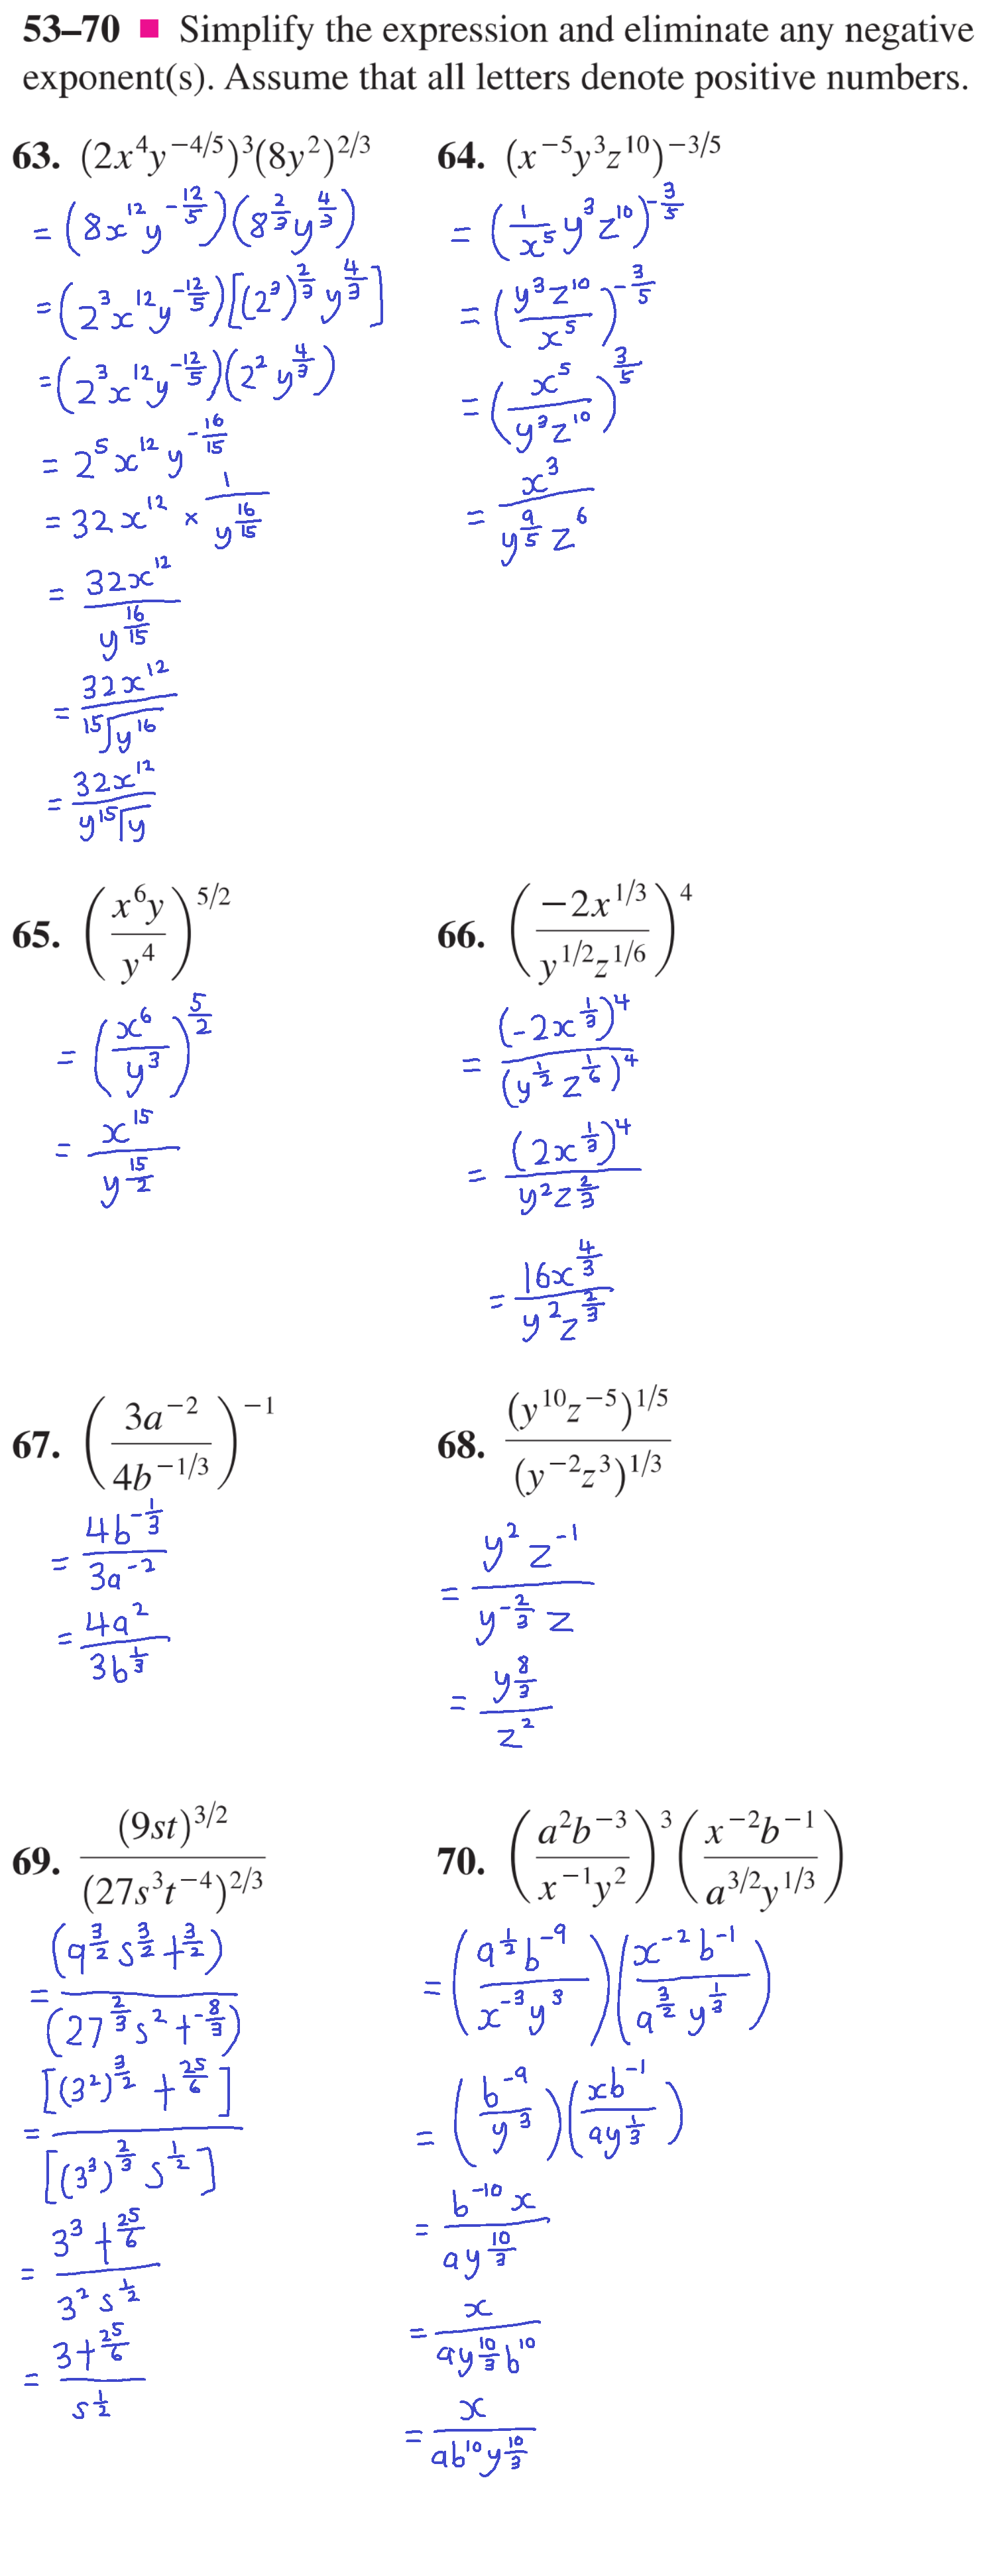 53–70 ■ Simplify the expression and eliminate any negative
exponent(s). Assume that all letters denote positive numbers.
63. (2x⁴y^(−4/5))³(8y²)^(2/3)
= (8x¹²y^(-12/5))(8^(2/3)y^(4/3))
= (2³x¹²y^(-12/5))[(2³)^(2/3) y^(4/3)]
= (2³x¹²y^(-12/5))(2² y^(4/3))
= 2⁵x¹²y^(-16/15)
= 32x¹² × 1/y^(16/15)
= 32x¹²/y^(16/15)
= 32x¹²/¹⁵√y¹⁶
= 32x¹²/y¹⁵√y
64. (x⁻⁵y³z¹⁰)^(−3/5)
= (1/x⁵ y³z¹⁰)^(-3/5)
= (y³z¹⁰/x⁵)^(-3/5)
= (x⁵/y³z¹⁰)^(3/5)
= x³/y^(9/5)z⁶
65. (x⁶y/y⁴)^(5/2)
= (x⁶/y³)^(5/2)
= x¹⁵/y^(15/2)
66. (−2x^(1/3)/y^(1/2)z^(1/6))⁴
= (-2x^(1/3))⁴/(y^(1/2)z^(1/6))⁴
= (2x^(1/3))⁴/y²z^(2/3)
= 16x^(4/3)/y²z^(2/3)
67. (3a⁻²/4b^(−1/3))⁻¹
= 4b^(-1/3)/3a⁻²
= 4a²/3b^(1/3)
68. (y¹⁰z⁻⁵)^(1/5)/(y⁻²z³)^(1/3)
= y²z⁻¹/y^(-2/3)z
= y^(8/3)/z²
69. (9st)^(3/2)/(27s³t⁻⁴)^(2/3)
= (9^(3/2)s^(3/2)t^(3/2))/(27^(2/3)s²t^(-8/3))
= [(3²)^(3/2)t^(25/6)]/[(3³)^(2/3)s^(1/2)]
= 3³t^(25/6)/3²s^(1/2)
= 3t^(25/6)/s^(1/2)
70. (a²b⁻³/x⁻¹y²)³(x⁻²b⁻¹/a^(3/2)y^(1/3))
= (a^(1/2)b⁻⁹/x⁻³y³)(x⁻²b⁻¹/a^(3/2)y^(1/3))
= (b⁻⁹/y³)(xb⁻¹/ay^(1/3))
= b⁻¹⁰x/ay^(10/3)
= x/ay^(10/3)b¹⁰
= x/ab¹⁰y^(10/3)